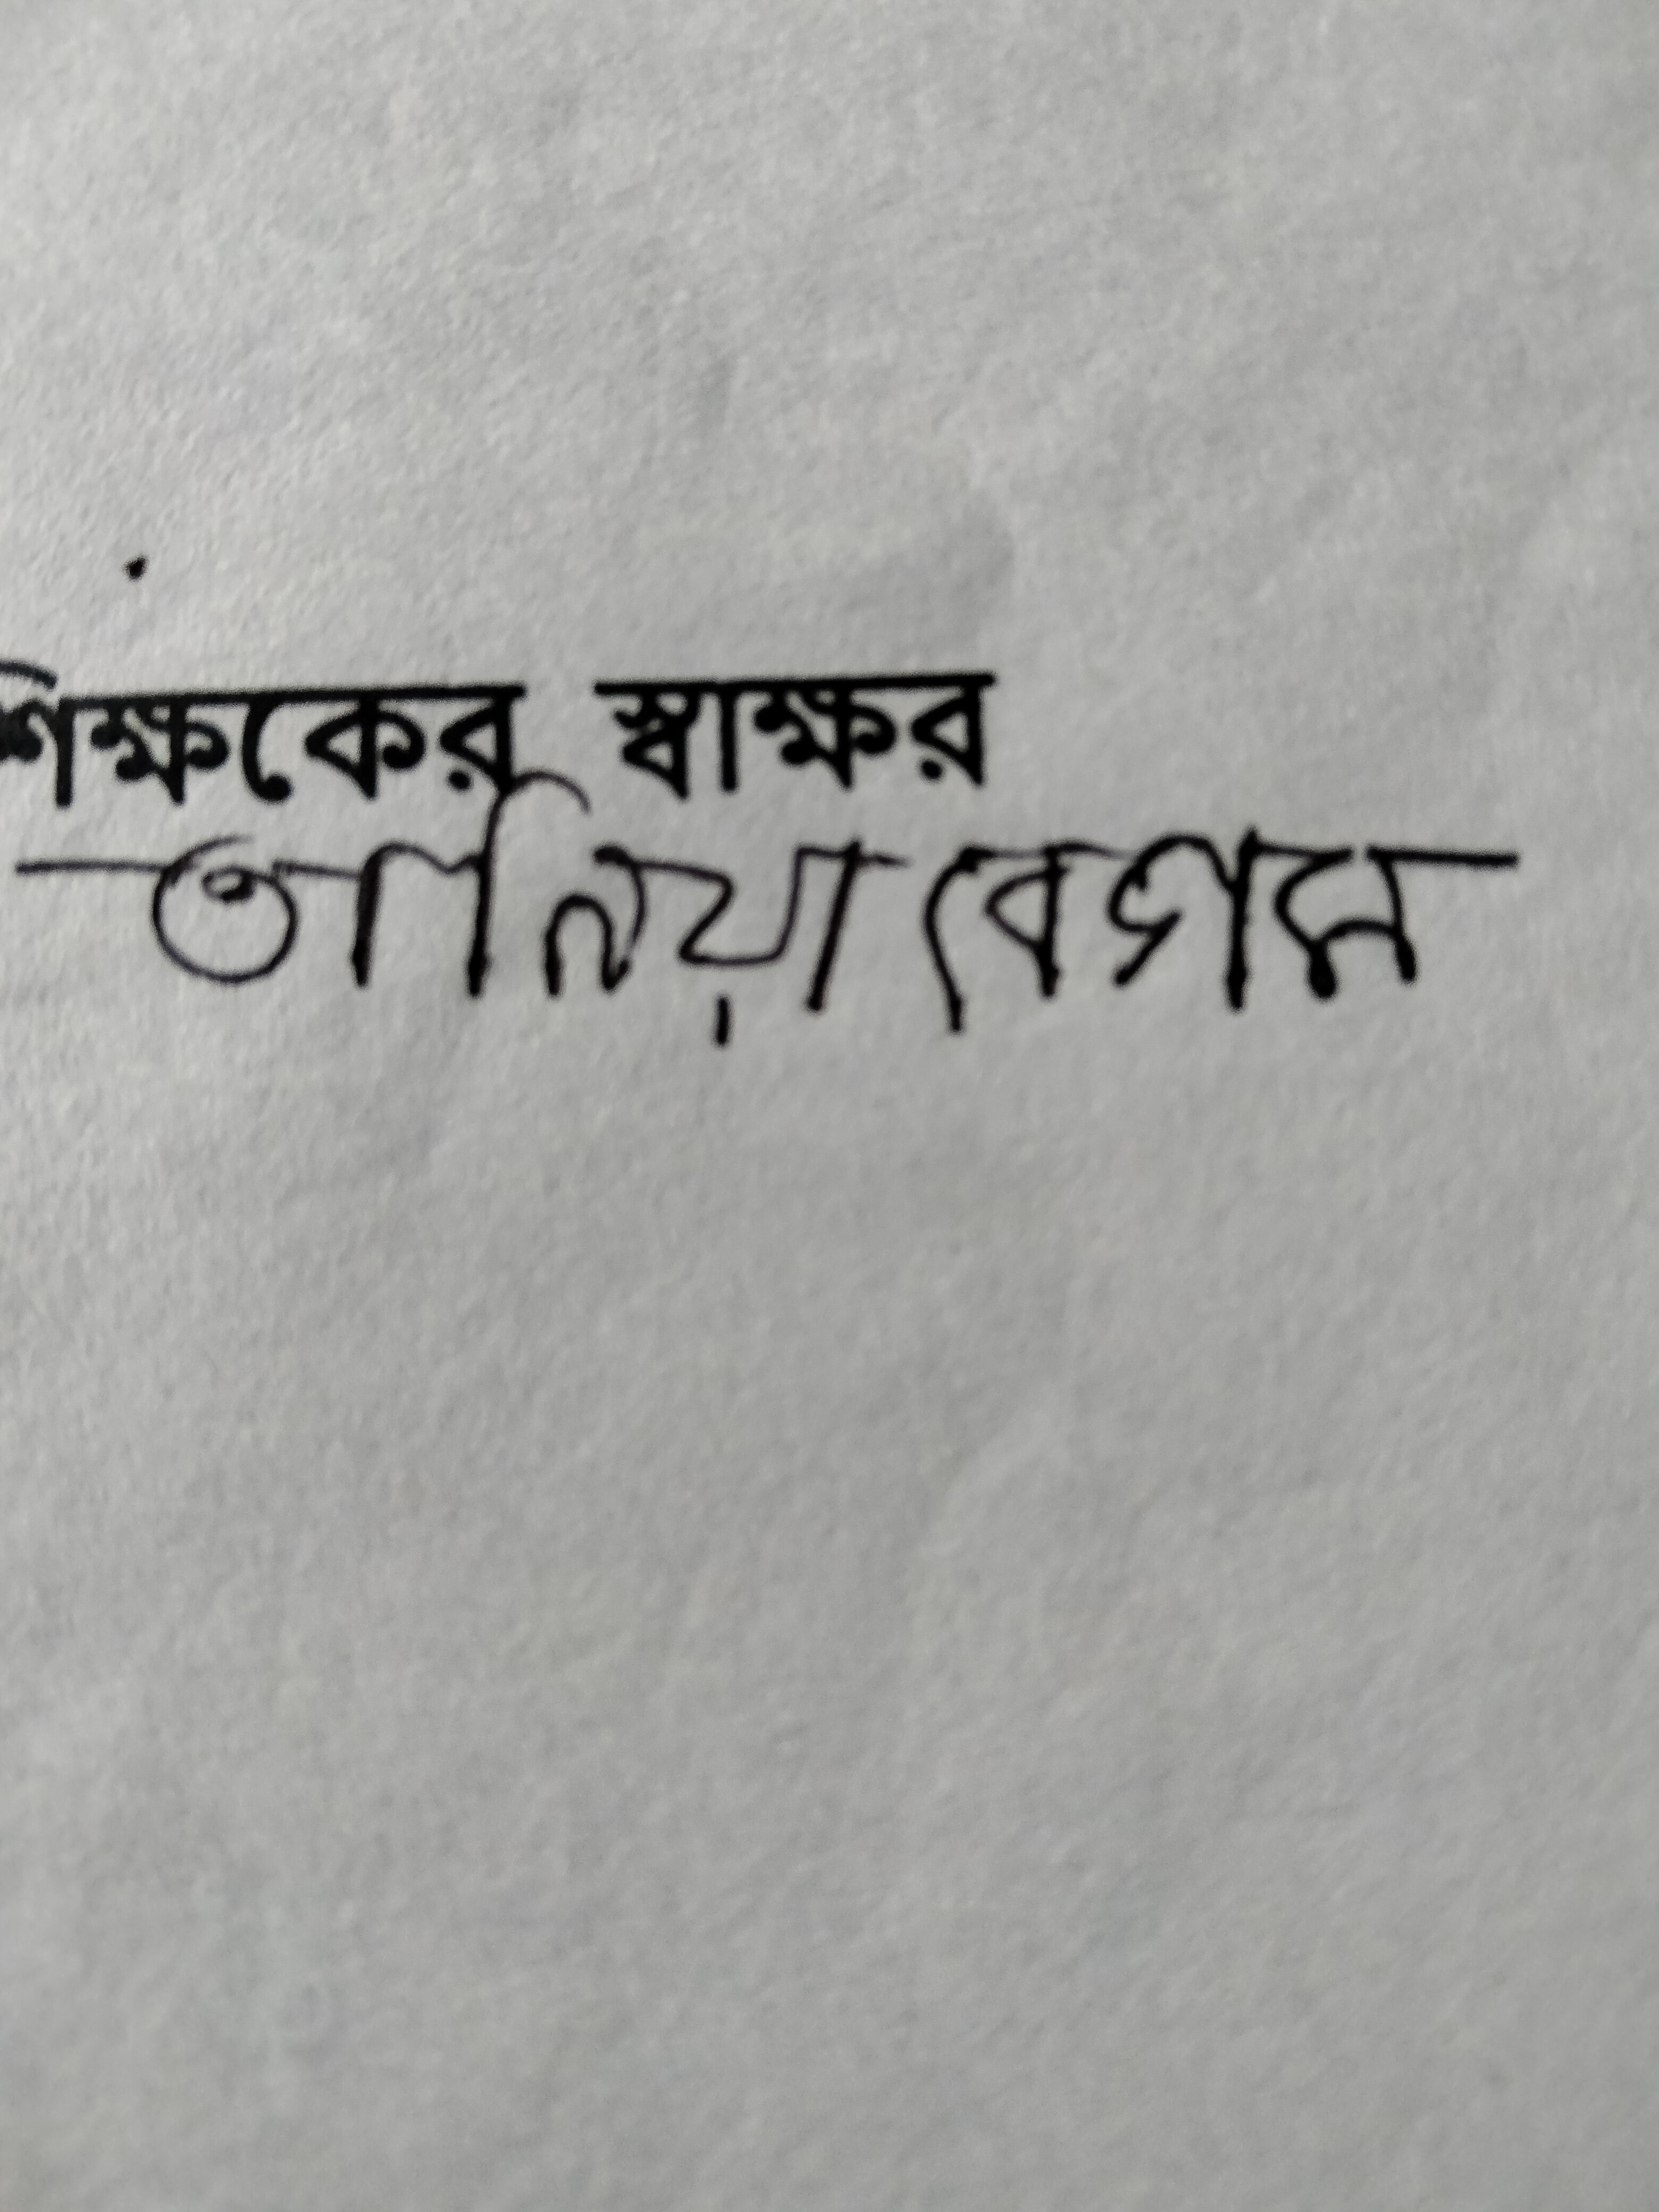 শিক্ষকের স্বাক্ষর
তানিয়া বেগম